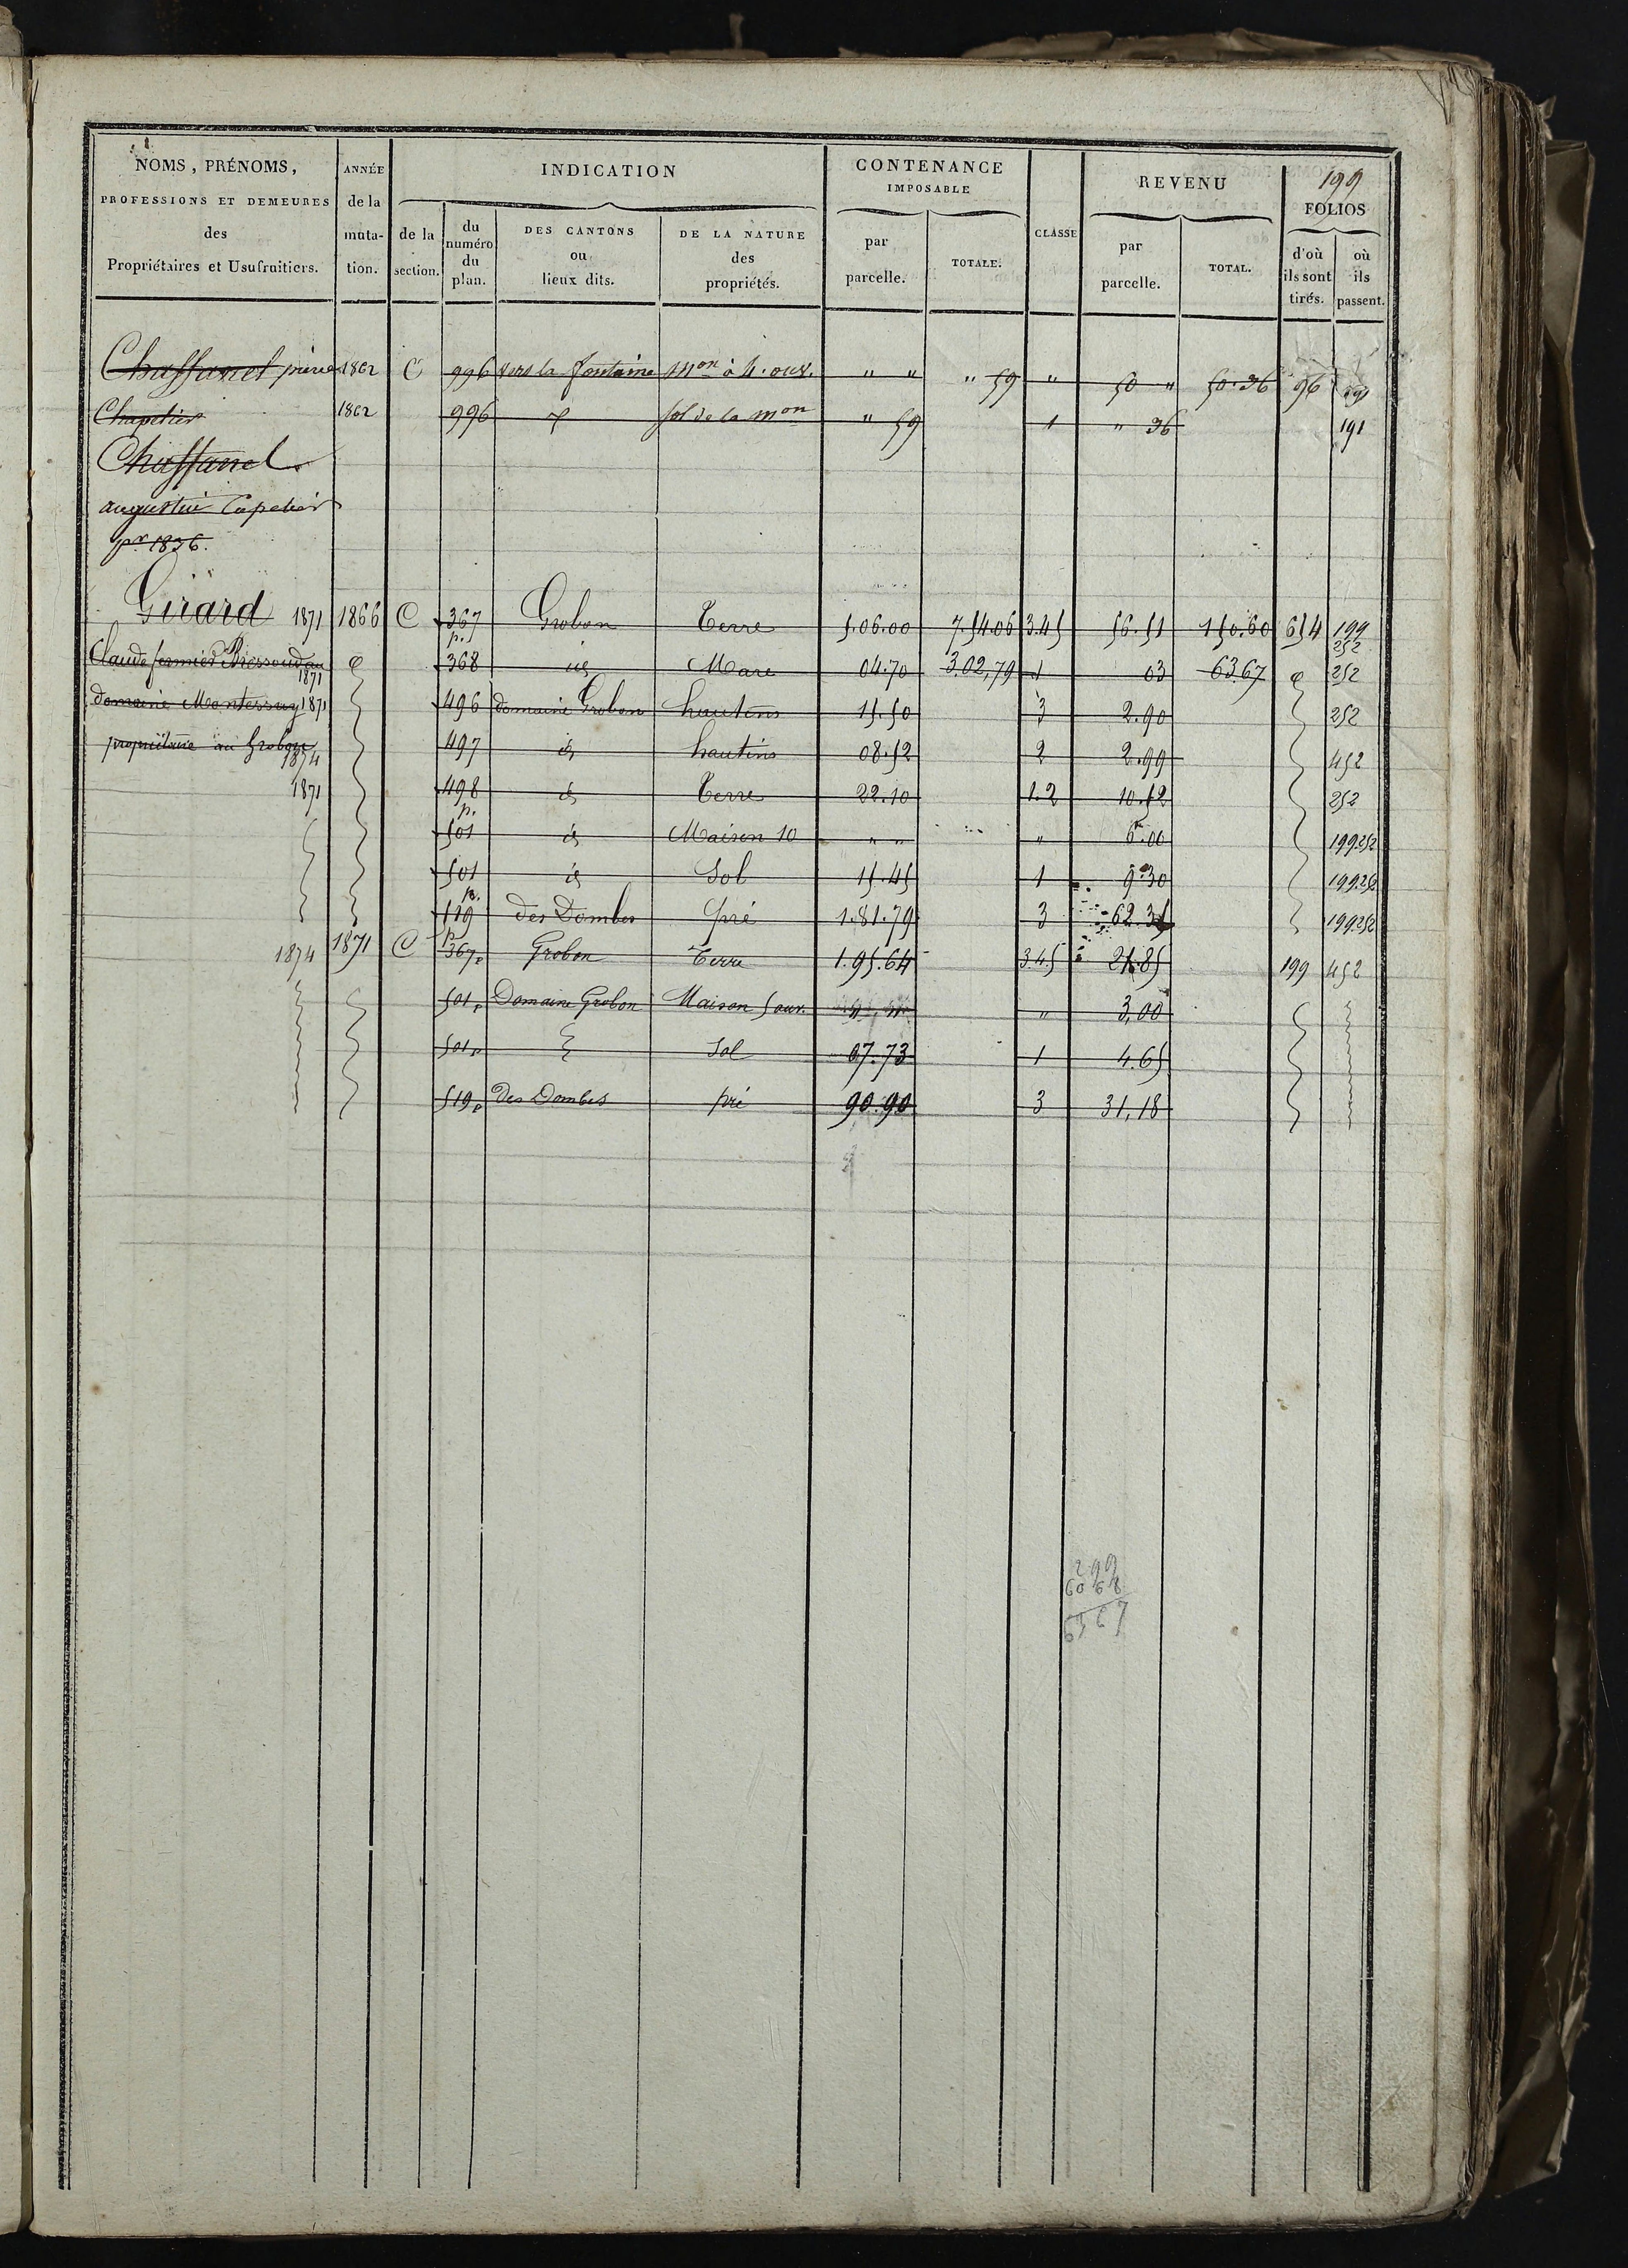 199
NOMS, PRÉNOMS, PROFESSIONS ET DEMEURES des Propriétaires et Usufruitiers.
ANNÉE de la muta- tion.
INDICATION
de la section.
du numéro du plan.
DES CANTONS ou lieux dits.
DE LA NATURE des propriétés.
CONTENANCE IMPOSABLE
par parcelle.
TOTALE.
CLASSE
REVENU
par parcelle.
TOTAL.
FOLIOS
d'où ils sont tirés.
où ils passent.
Chaffanel 1862 C 996 vers la fontaine mon à 4. ouv. " " " 59 " 50 " 50.36 96 191
1862 996 sol de la mon " 59 1 " 36 191
Chaffanel
augustin
pr 1836.
Girard 1871 1866 C 367 p. Grobon Terre 5.06.00 7.54.06 3.4.5 56.51 150.60 654 199 252
Claude fermier 1871 368 id Mare 04.70 3.02,79 1 03 63.67 252
domaine Montessuy 1871 496 domaine Grobon hautins 15.50 3 2.90 252
propriétaire au Grobon 1874 497 id hautins 08.52 2 2.99 452
1871 498 id Terre 22.10 1.2 10.52 252
p. 501 id Maison 10 " " " 6.00 199.252
501 id Sol 15.45 1 9.30 199.252
p. 519 des Dombes pré 1.81.79 3 62.35 199.252
1874 1871 C 367 p Grobon Terre 1.95.64 3.4.5 21.85 199 452
501 p Domaine Grobon Maison 5 ouv. " " " 3,00
501 p Sol 07.73 1 4.65
519 p des Dombes pré 90.90 3 31,18
2 99
60 68
63 67